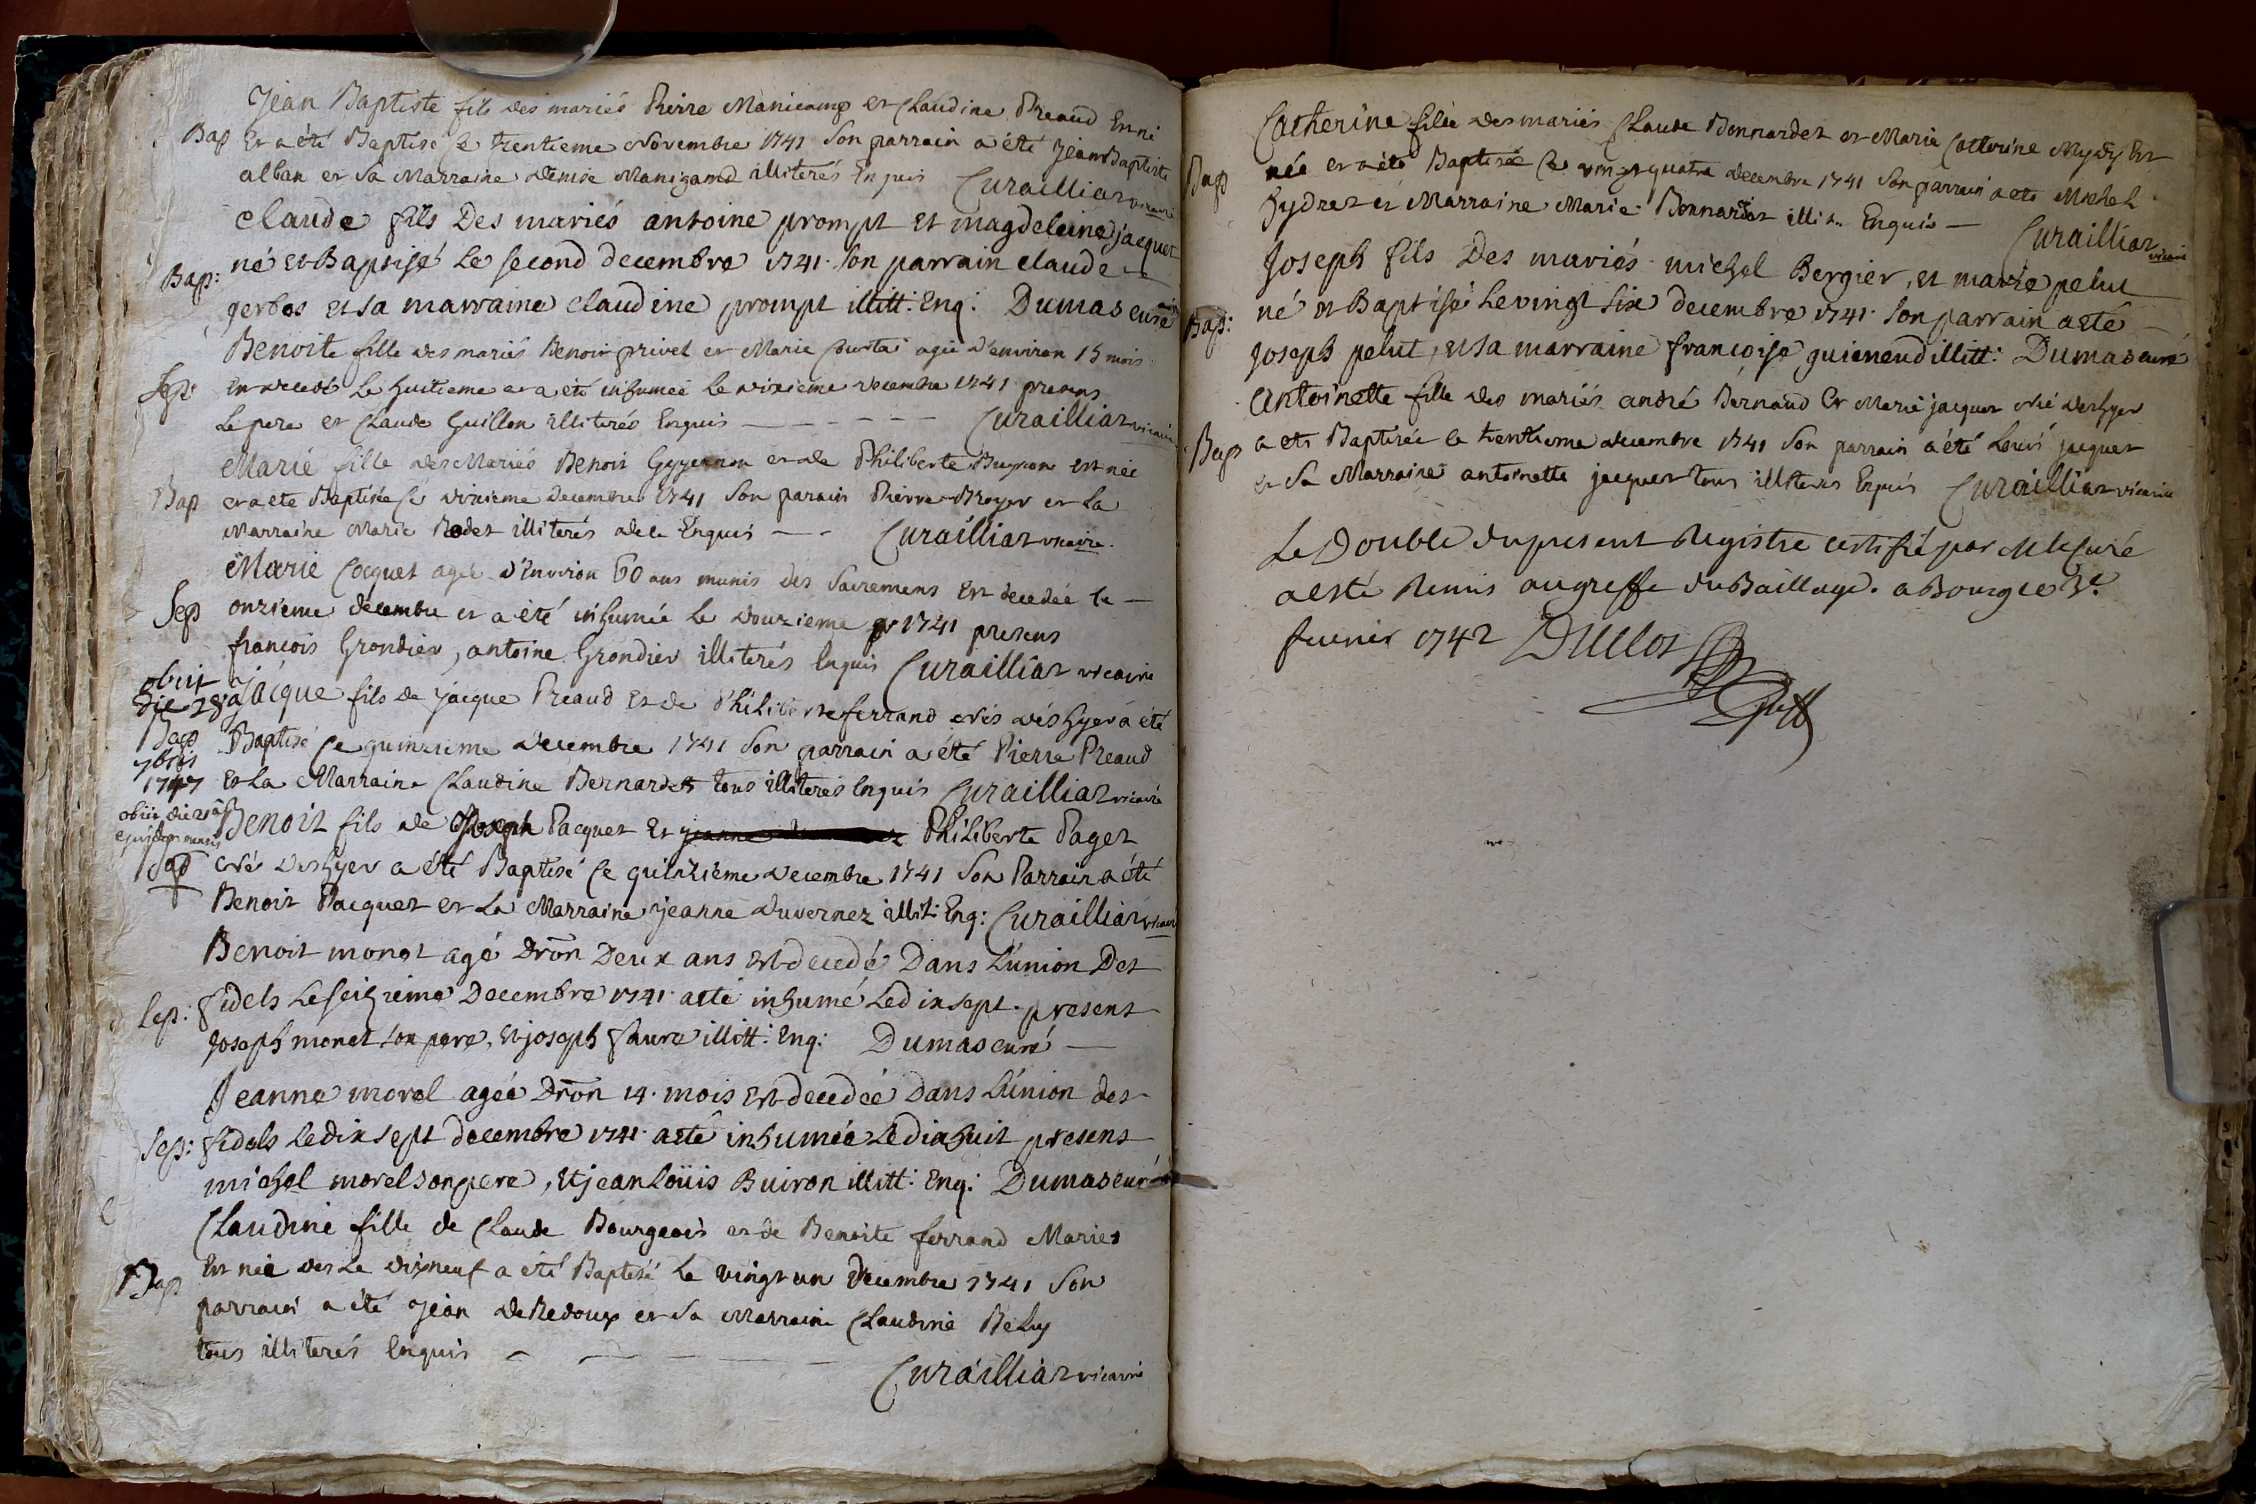 Jean Baptiste fils des mariés Pierre Manicamp et Claudine Preaud Est né
Bap Et a été Baptisé le trentieme Novembre 1741 Son parrain a été Jean Baptiste
alban et Sa Marraine Denise Manigand illiterés Enquis Curailliat vicaire
claude fils Des mariés antoine prompt Et magdeleine jacquet
Bap: né et Baptisé Le second decembre 1741. Son parrain claude
gerbos et sa marraine claudine prompt illitt: Enq: Dumas curé
Benoite fille des mariés Benoit privet et Marie agée d'environ 15 mois
Sep: Est decedé Le huitieme et a été inhumeé Le dixieme decembre 1741 presens
Le pere et Claude Guillon illiterés Enquis Curailliat vicaire
Marie fille des Mariés Benoit et de Philiberte Est née
Bap et a été Baptisée le dixieme Decembre 1741 Son parain Pierre Broyer et La
Marraine Marie Rodet illiterés de ce Enquis Curailliat vicaire.
Marie Cocquet agée d'Environ 60 ans munis des Sacremens Est decedée le
Sep onzieme decembre et a été inhumée Le douzieme 1741 presens
francois Grondier, antoine Grondier illiterés Enquis Curailliat vicaire
obiit
die 28a Jacque fils de jacque Preaud Et de Philiberte ferrand nés dès hyer a été
Bap Baptisé Ce quinzieme decembre 1741 Son parrain a été Pierre Preaud
7bris
1747 Et La Marraine Claudine Bernardet tous illiterés Enquis Curailliat vicaire
obiit die 21a Benoit fils de Joseph Pacquet Et Philiberte Paget
ejusdem mensis
Bap né des hyer a été Baptisé Ce quinzieme decembre 1741 Son Parrain a été
Benoit Pacquet et La Marraine jeanne duvernez illit: Enq: Curailliat vicaire
Benoit monet agé Dron Deux ans Est decedé Dans L'union Des
Sep: fidels Le seizieme Decembre 1741. a eté inhumé Le dix sept. present
Joseph monet son pere, Et joseph faure illitt: Enq: Dumas curé
Jeanne morel agée Dron 14. mois Est decedée Dans L'union des
Sep: fidels Le dix sept decembre 1741. a eté inhumée Le dix huit present
michel morel son pere, Et jean Loüis Buiron illitt: Enq: Dumas curé
Claudine fille de Claude Bourgeois et de Benoite ferrand Mariés
Bap Est née des Le dixneuf a été Baptisé Le vingt un Decembre 1741 Son
parrain a été Jean deRedoux et Sa Marraine Claudine Beluy
tous illiterés Enquis
Curailliat vicaire
Catherine fille des mariés Claude Bonnardet et Marie Catherine Est
Bap née et a été Baptisée Ce vingt quatre decembre 1741 Son parrain a été Michel
hydret et Marraine Marie Bonnardet illit. Enquis Curailliat vicaire
Joseph fils Des mariés michel Bergier, et marie pelut
Bap: né et Baptisé Le vingt six decembre 1741. Son parrain a eté
Joseph pelut, et sa marraine francoise guienend illitt: Dumas curé
Antoinette fille des mariés andré Bernaud Et Marie jacquet née des hyer
Bap a eté Baptisée Ce trentieme decembre 1741 Son parrain a été Louis jacquet
et Sa Marraine antoinette jacquet tous illiterés Enquis Curailliat vicaire
Le Double du present Registre certifié par M le Curé
a esté Remis au greffe du Baillage. a Bourg le 3e.
fevrier 1742 Duclos
Greff